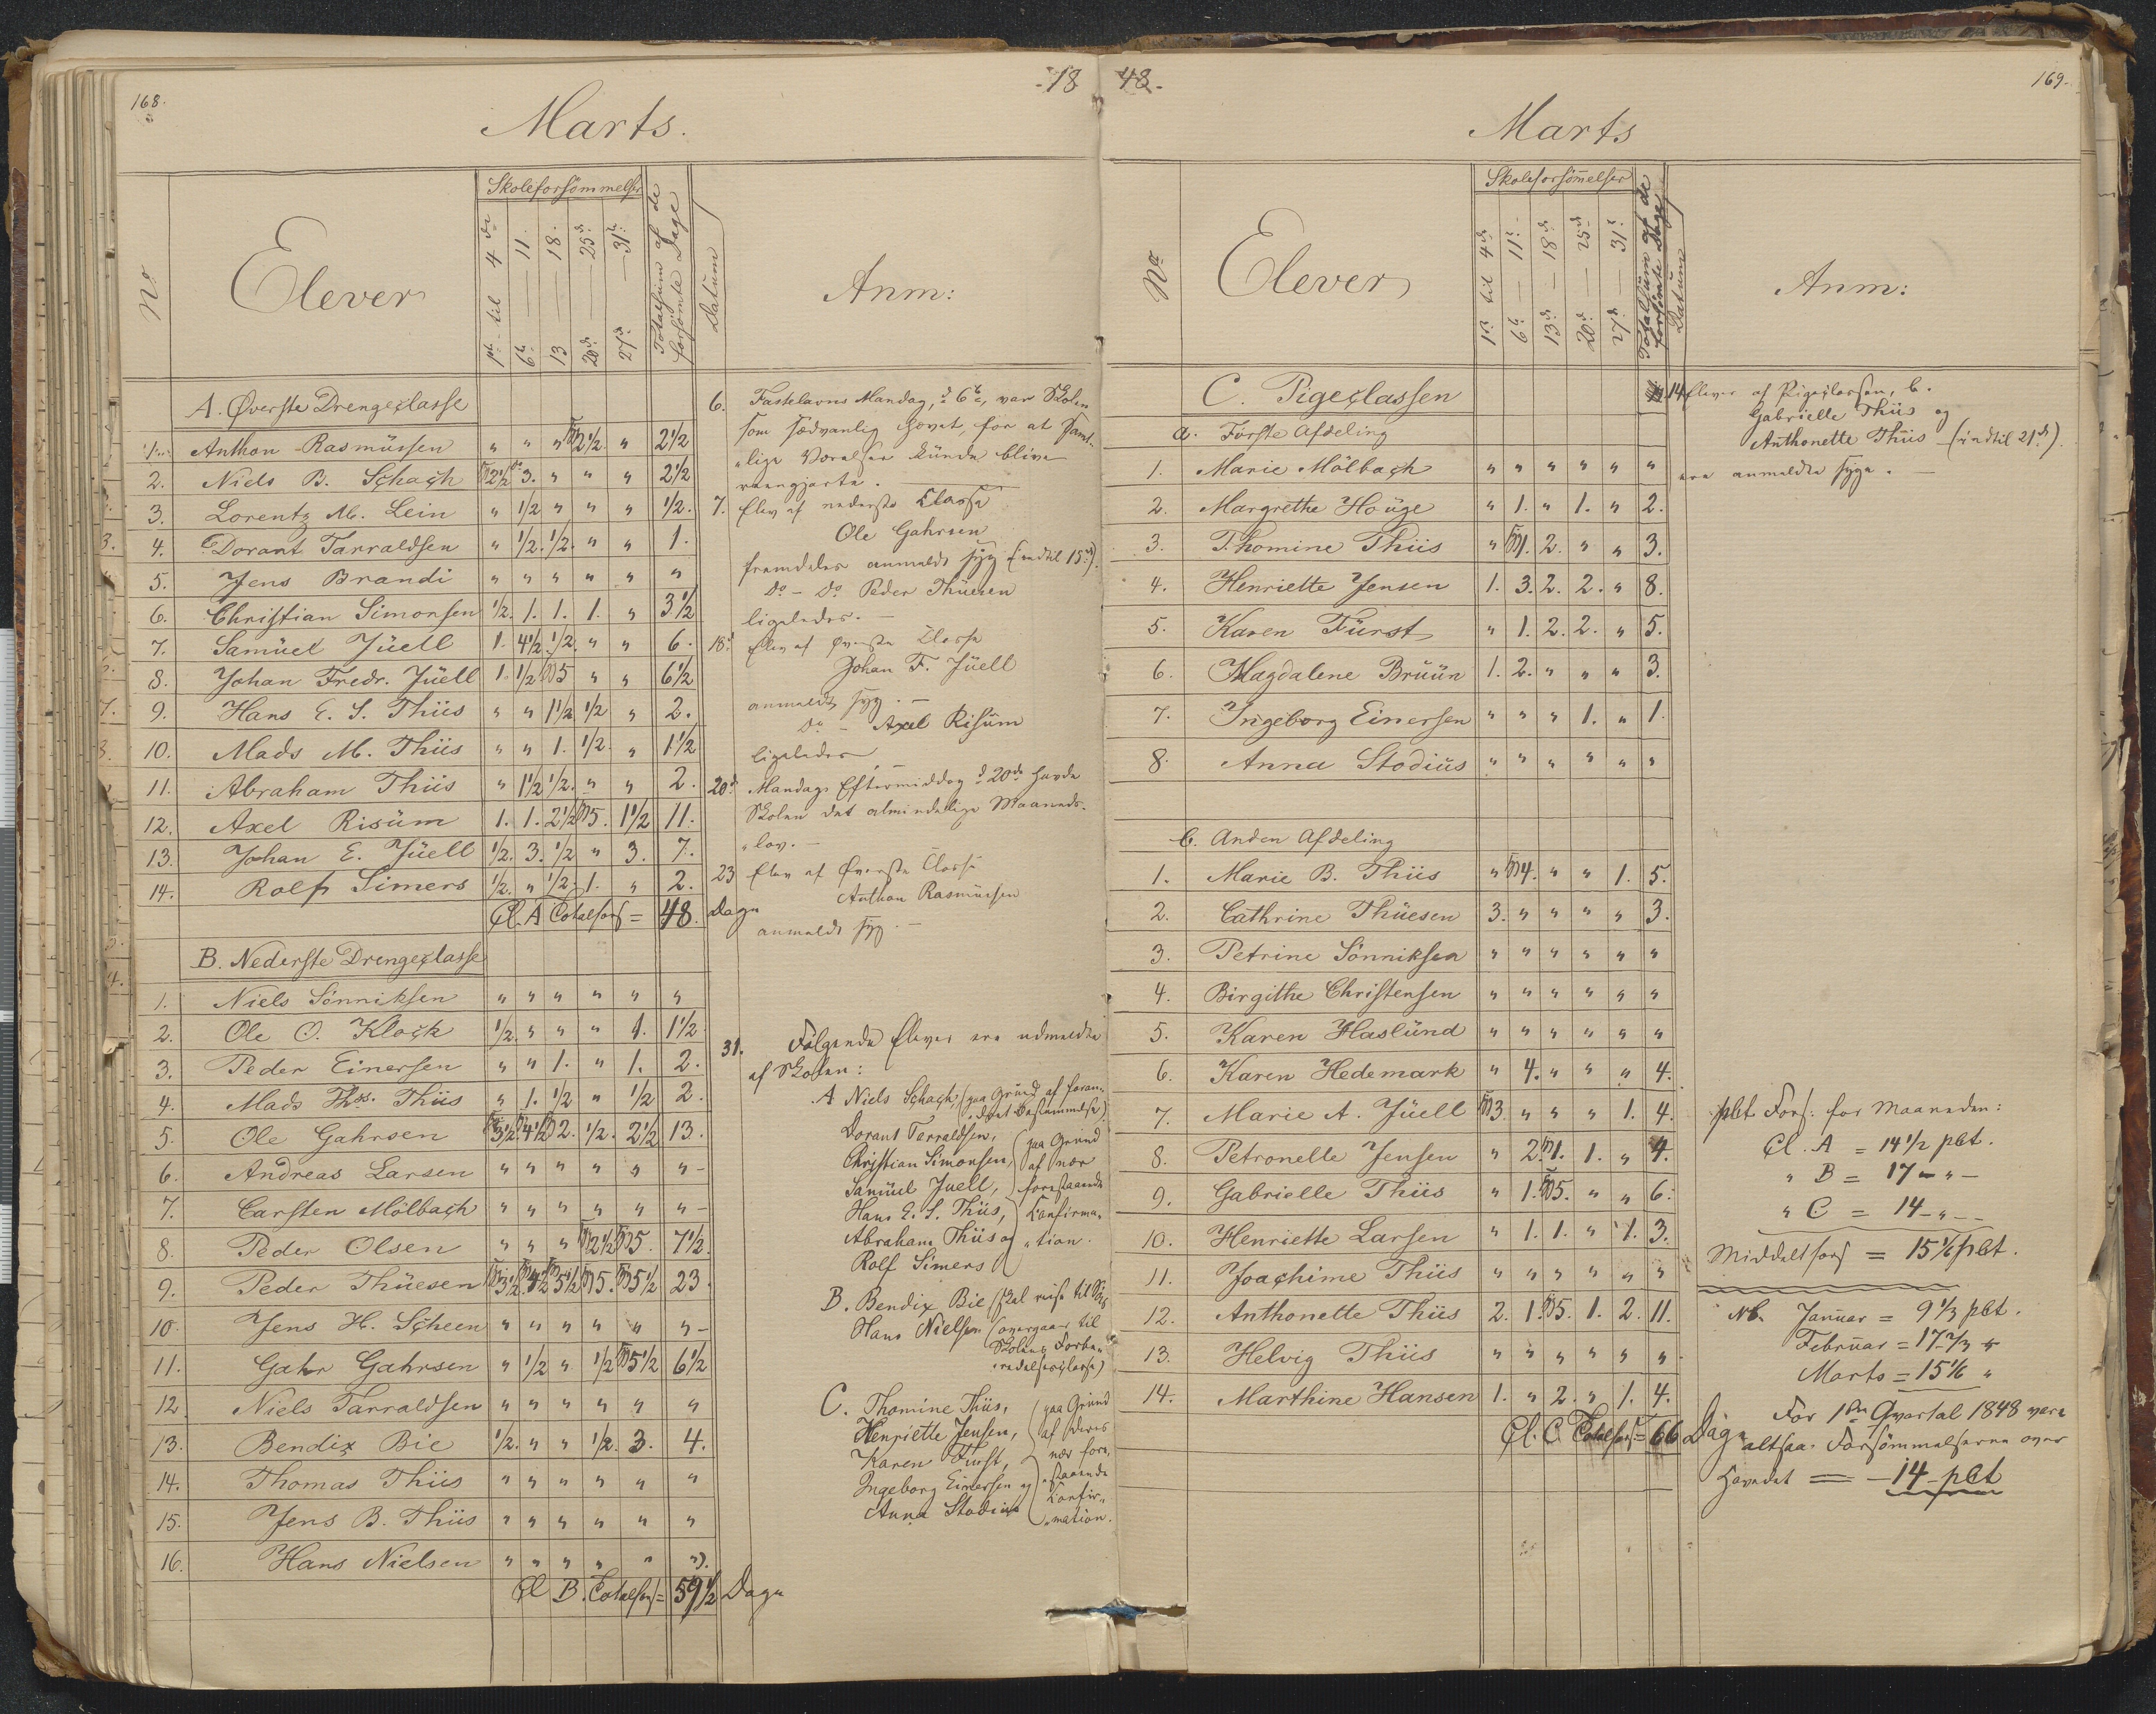 168.
-18
Marts.
No
Elever
Skoleforsömmelser
1ste til 4de
6te — 11.
13 — 18.
20de — 25de
27de — 31te
Totalsum af de
forsömte Dage
Datum
Anm:
A. Øverste Drengeclasse
1. Anthon Rasmüssen " " " 2½ " 2½
2. Niels B. Schach 2½ 3. " " " 2½
3. Lorentz M. Lein " ½ " " " ½.
4. Dorant Tarraldsen " ½. ½. " " 1.
5. Jens Brandi " " " " " "
6. Christian Simonsen ½. 1. 1. 1. " 3½
7. Samüel Jüell 1. 4½. ½. " " 6.
8. Johan Fredr. Jüell 1. ½ 5 " " 6½
9. Hans E. S. Thiis " " 1½ ½ " 2.
10. Mads M. Thiis " " 1. ½. " 1½
11. Abraham Thiis " 1½ ½. " " 2.
12. Axel Risüm 1. 1. 2½ 5. 1½ 11.
13. Johan E. Jüell ½. 3. ½ " 3. 7.
14. Rolf Simers ½. " ½. 1. " 2.
Cl. A Totalfors = 48. Dage
B. Nederste Drengeclasse
1. Niels Sönniksen " " " " " "
2. Ole O. Klock ½. " " " 1. 1½
3. Peder Einersen " " 1. " 1. 2.
4. Mads Thss. Thiis " 1. ½ " ½ 2.
5. Ole Gahrsen 3½. 4½ 2. ½. 2½ 13.
6. Andreas Larsen " " " " " " -
7. Carsten Mölbach " " " " " " -
8. Peder Olsen " " " 2½ 5. 7½.
9. Peder Thüesen 3½. 4½ 5½ 5. 5½ 23.
10. Jens H. Scheen " " " " " " -
11. Gahr Gahrsen " ½ " ½ 5½ 6½
12. Niels Tarraldsen " " " " " "
13. Bendix Bie ½. " " ½. 3. 4.
14. Thomas Thiis " " " " " "
15. Jens B. Thiis " " " " " "
16. Hans Nielsen " " " " " "
Cl B. Totalfors = 59½ Dage
6. Fastelavns Mandag, d. 6te, var Skolen
som sædvanlig hævet, for at samt-
"lige Værelser künde blive
reengjorte. —
7. Elev af nederste Classe
Ole Gahrsen
fremdeles anmeldt syg (indtil 15de).
Do - Do Peder Thüesen
ligeledes. —
18. Elev af øverste Classe
Johan F. Jüell
anmeldt syg. —
Do - Axel Risüm
ligeledes. —
20de Mandags Eftermiddag d. 20de havde
Skolen det almindelige Maaneds-
"lov. —
23 Elev af Øverste Classe
Anthon Rasmüssen
anmeldt syg. —
31. Fölgende Elever ere udmeldte
af Skolen:
A Niels Schach, (paa Grund af foran-
dret Bestemmelse)
Dorant Tarraldsen,
Christian Simonsen,
Samüel Juell,
Hans E. S. Thiis,
Abraham Thiis og
Rolf Simers
(paa Grund
af nær
forestaaende
Confirma-
"tion.
B. Bendix Bie (skal reise til Söes
Hans Nielsen (overgaar til
Skolens Forbe-
redelsesclasse)
C. Thomine Thiis,
Henriette Jensen,
Karen Fürst,
Ingeborg Einersen og
Anna Stodius
(paa Grund
af deres
nær fore-
"staaende
Confir-
"mation.
48.
169.
Marts
No
Elever
Skoleforsömelser
1ste til 4de
6te — 11te
13de — 18de
20de — 25de
27de — 31te
Totalsüm af de
forsömte Dage
Datum
Anm:
C. Pigeclassen
a. Förste Afdeling
1. Marie Mölbach " " " " " "
2. Margrethe Houge " 1. " 1. " 2.
3. Thomine Thiis " 1. 2. " " 3.
4. Henriette Jensen 1. 3. 2. 2. " 8.
5. Karen Fürst " 1. 2. 2. " 5.
6. Magdalene Brüün 1. 2. " " " 3.
7. Ingeborg Einersen " " " 1. " 1.
8. Anna Stodius " " " " " "
b. Anden Afdeling
1. Marie B. Thiis " 4. " " 1. 5.
2. Cathrine Thüesen 3. " " " " 3.
3. Petrine Sönniksen " " " " " "
4. Birgithe Christensen " " " " " "
5. Karen Haslünd " " " " " "
6. Karen Hedemark " 4. " " " 4.
7. Marie A. Jüell 3. " " " 1. 4.
8. Petronelle Jensen " 2. 1. 1. " 4.
9. Gabrielle Thiis " 1. 5. " " 6.
10. Henriette Larsen " 1. 1. " 1. 3.
11. Joachime Thiis " " " " " "
12. Anthonette Thiis 2. 1. 5. 1. 2. 11.
13. Helvig Thiis " " " " " "
14. Marthine Hansen 1. " 2. " 1. 4.
Cl. C Totalfors = 66 Dage
14 Elever af Pigeclassen, b.
Gabrielle Thiis og
Anthonette Thiis — (indtil 21de).
ere anmeldte syge. —
pCt. Fors: for Maaneden:
Cl. A = 14½ pCt.
" B = 17 - " -
" C = 14 - " -
Middeltfors = 15⅙ pCt.
Nb. Januar = 9⅓ pCt.
Februar = 17⅔ "
Marts = 15⅙ "
For 1ste Qvartal 1848 vare
altsaa Forsömmelserne over
Hovedet = 14 pCt